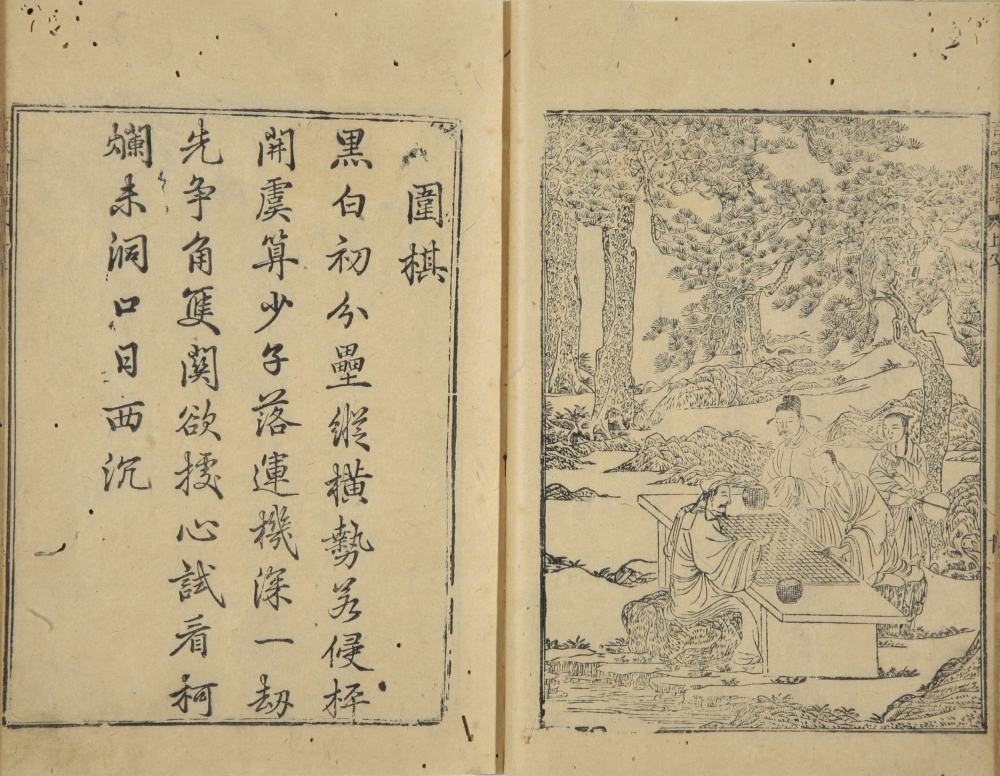 圍棋
黒白初分壘縱橫勢若侵枰
開虞算少子落運機深一劫
先争角隻関欲擾心試看柯
爛未洞口日西沉